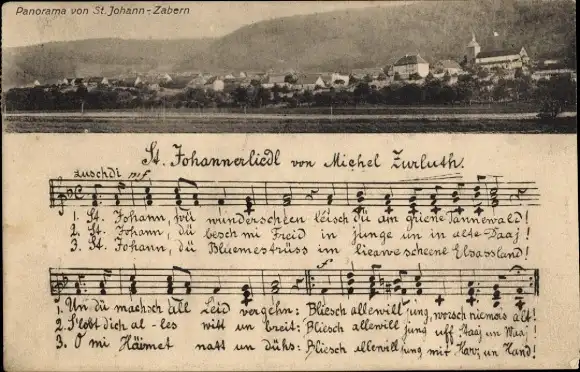 Panorama von St. Johann-Zabern
St. Johannerliedl von Michel Zurluth.
zuschdi mf
1. St. Johann, wü wunderscheen leisch dü am griene Tannewald!
2. St. Johann, dü besch mi Freid in junge un in alte Daaj!
3. St. Johann, dü Bluemestrüss im liewe scheene Elsassland!
f
1. Un dü machsch all Leid vergehn: Bliesch allewill jung, worsch niemols alt!
2. S'lobt dich al-les witt un breit: Bliesch allewill jung uff Staaj un Waaj!
3. O mi Häimet natt un düks: Bliesch allewill jung mit Harz un Hand!